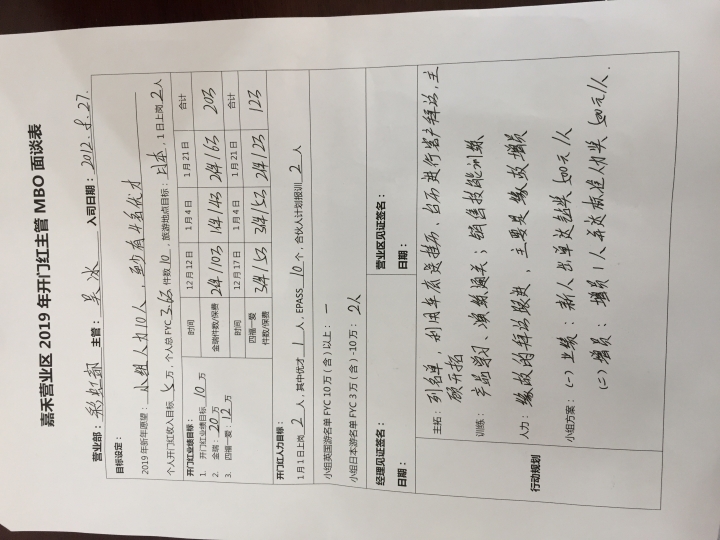 嘉禾营业区 2019 年开门红主管 MBO 面谈表
营业部：彩虹部 主管：吴冰 入司日期：2012.8.27.
目标设定：
2019 年新年愿望：小组人力10人，至少有4名优才
个人开门红收入目标 5 万，个人总 FYC 3.63 件数 10，旅游地点目标：日本，1 日上岗 2 人
开门红业绩目标：
1. 开门红业绩目标 10 万
2. 金瑞：20 万
3. 四福一爱：12 万
时间 12 月 12 日 1 月 4 日 1 月 21 日 合计
金瑞件数/保费 2件/10万 1件/4万 2件/6万 20万
时间 12 月 17 日 1 月 4 日 1 月 21 日 合计
四福一爱件数/保费 3件/5万 3件/5万 2件/2万 12万
开门红人力目标：
1 月 1 日上岗 2 人，其中优才 1 人，EPASS 10 个，合伙人计划报训 2 人
小组英国游名单 FYC 10 万（含）以上：一
小组日本游名单 FYC 3 万（含）-10 万：2人
经理见证签名： 营业区见证签名：
日期： 日期：
行动规划
主拓：列名单，利用年底送挂历、台历进行客户拜访，主
顾开拓
训练：产品学习、演练通关；销售技能训练
人力：缘故的拜访跟进，主要是缘故增员
小组方案：(一)业绩：新人出单达钻奖500元/人
(二)增员：增员1人并达标进人力奖500元/人.